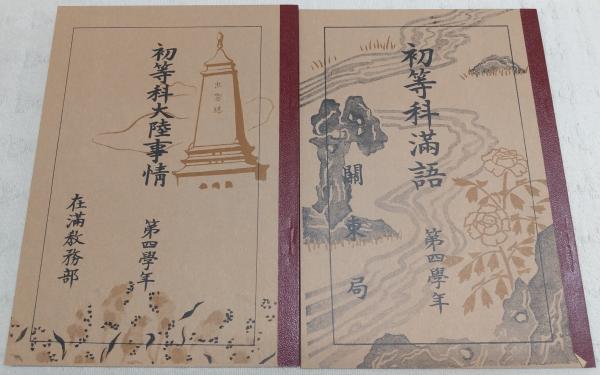 初等科大陸事情
第四學年
在滿教務部
忠霊塔
初等科滿語
第四學年
關東局